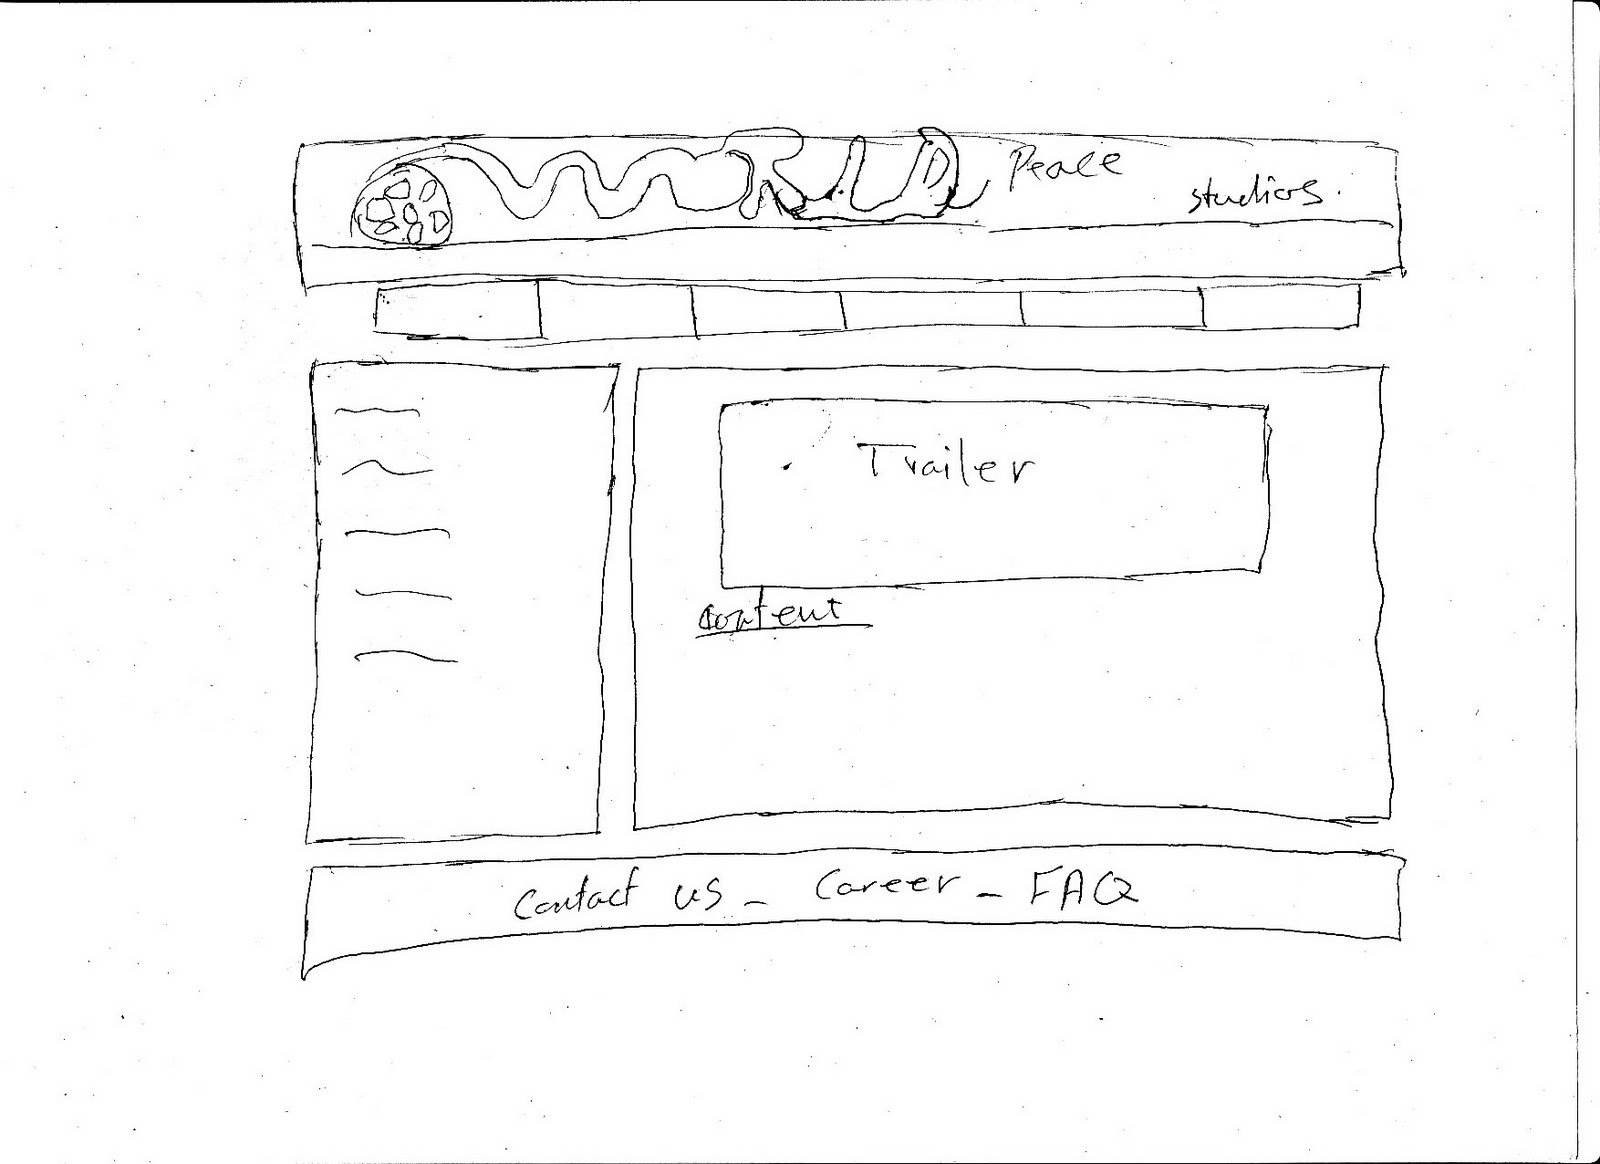 WORLD Peace studios.
Trailer
content
Contact us - Career - FAQ